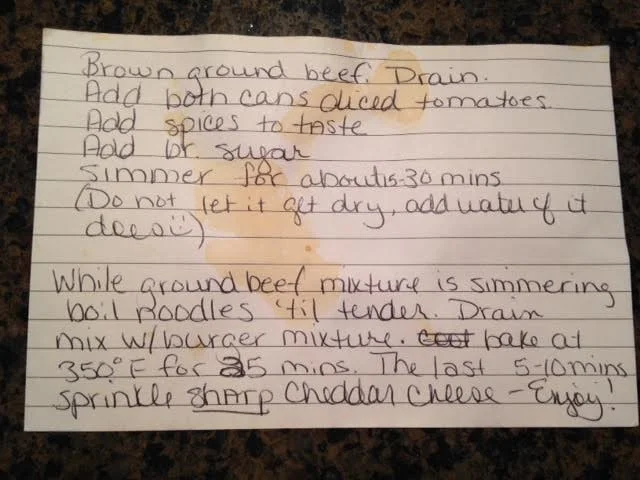 Brown ground beef. Drain.
Add both cans diced tomatoes.
Add spices to taste
Add br. sugar
Simmer for about 15-30 mins
(Do not let it get dry, add water if it
does :))
While ground beef mixture is simmering
boil noodles 'til tender. Drain
mix w/burger mixture. bake at
350°F for 35 mins. The last 5-10 mins
sprinkle sharp Cheddar Cheese - Enjoy!